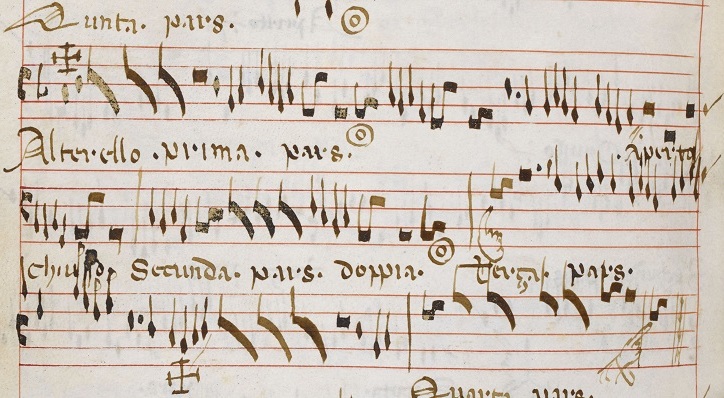 Quinta. pars.
Alterello. prima. pars. Aperto
Chiuso Secunda. pars. doppia. Terza. pars.
Quarta pars.